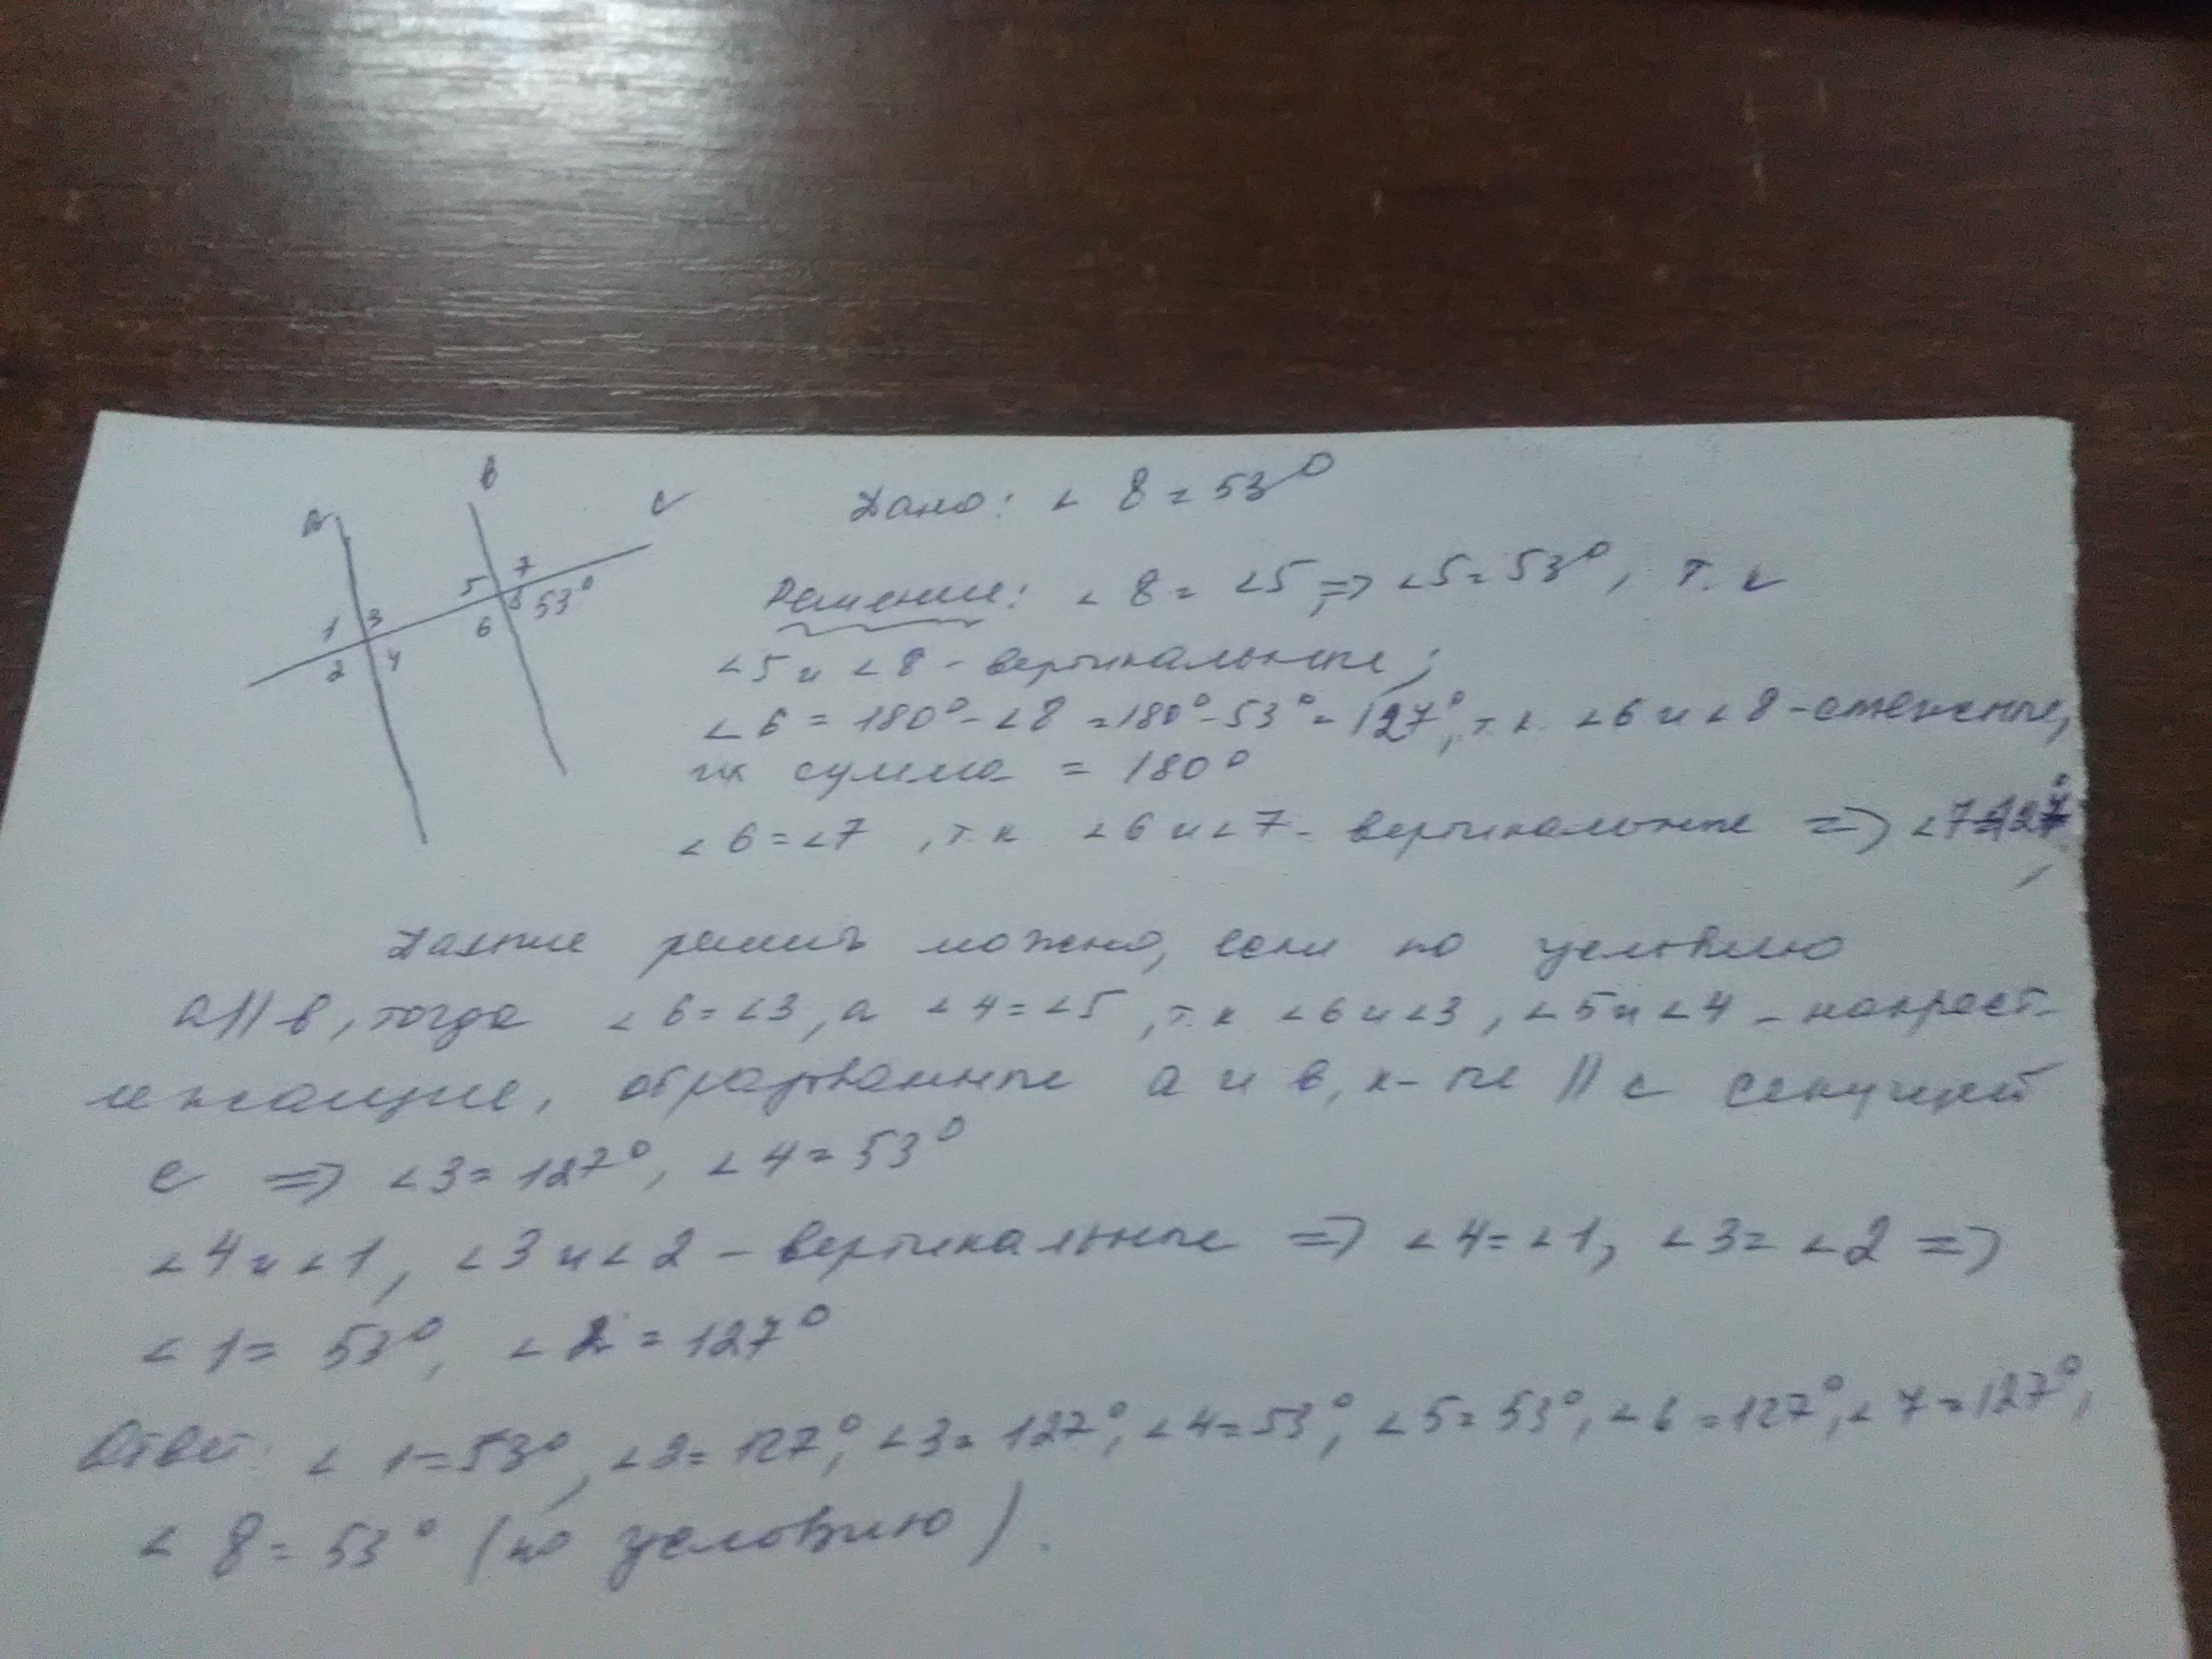 a
в
с
1
3
2
4
5
7
6
8
53°
Дано: ∠8 = 53°
Решение: ∠8 = ∠5, => ∠5 = 53°, т.к
∠5 и ∠8 - вертикальные;
∠6 = 180° - ∠8 = 180° - 53° = 127°, т.к. ∠6 и ∠8 - смежные,
их сумма = 180°
∠6 = ∠7, т.к ∠6 и ∠7 - вертикальные => ∠7 = 127°,
Дальше решить можно, если по условию
a || в, тогда ∠6 = ∠3, а ∠4 = ∠5, т.к ∠6 и ∠3, ∠5 и ∠4 - накрест-
лежащие, образованные a и в, к-ые || с секущей
с => ∠3 = 127°, ∠4 = 53°
∠4 и ∠1, ∠3 и ∠2 - вертикальные => ∠4 = ∠1, ∠3 = ∠2 =>
∠1 = 53°, ∠2 = 127°
Ответ: ∠1 = 53°, ∠2 = 127°, ∠3 = 127°, ∠4 = 53°, ∠5 = 53°, ∠6 = 127°, ∠7 = 127°,
∠8 = 53° (по условию).